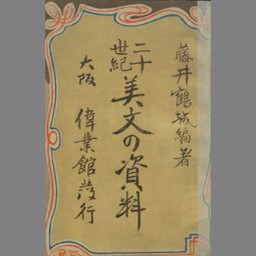 藤井鶴城編著
二十世紀
美文の資料
大阪 偉業館発行